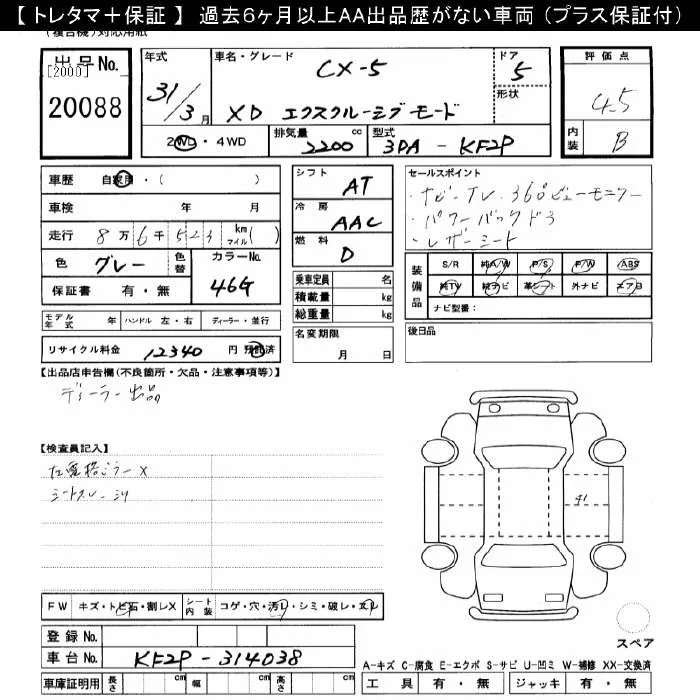 【 トレタマ＋保証 】 過去6ヶ月以上AA出品歴がない車両（プラス保証付）
(複合機)対応用紙
出品No.
[2000]
20088
年式
31/3月
車名・グレード
CX-5
XD エクスクルーシブモード
ドア
5
形状
評価点
4.5
内装
B
2WD・4WD
排気量
2200 cc
型式
3DA - KF2P
車歴 自家用・( )
車検 年 月
走行 8万6千523 km マイル( )
色 グレー 色替
カラーNo.
46G
保証書 有・無
モデル年式 年 ハンドル 左・右 ディーラー・並行
リサイクル料金 12340 円 預託済
シフト
AT
冷房
AAC
燃料
D
乗車定員 名
積載量 kg
総重量 kg
名変期限
月 日
セールスポイント
・ナビ・TV・360ビューモニター
・パワーバックドア
・レザーシート
装備品
S/R 純A/W P/S P/W ABS
純TV 純ナビ 革シート 外ナビ エアB
ナビ型番：
後日品
【出品店申告欄(不良箇所・欠品・注意事項等)】
ディーラー出品
【検査員記入】
シートスレ
FW キズ・トビ石・割レX シート内装 コゲ・穴・汚レ・シミ・破レ・スレ
A1
スペア
登録No.
車台No. KF2P-314038
車庫証明用 長さ cm 幅 cm 高さ cm
A-キズ C-腐食 E-エクボ S-サビ U-凹ミ W-補修 XX-交換済
工具 有・無 ジャッキ 有・無